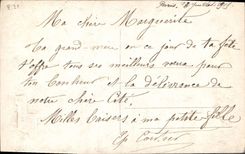 Paris,
Ma chère Marguerite
La grand mère en ce jour de ta fête
t'offre tous ses meilleurs vœux pour
ton bonheur et la délivrance de
notre chère Cité.
Milles baisers à ma petite fille